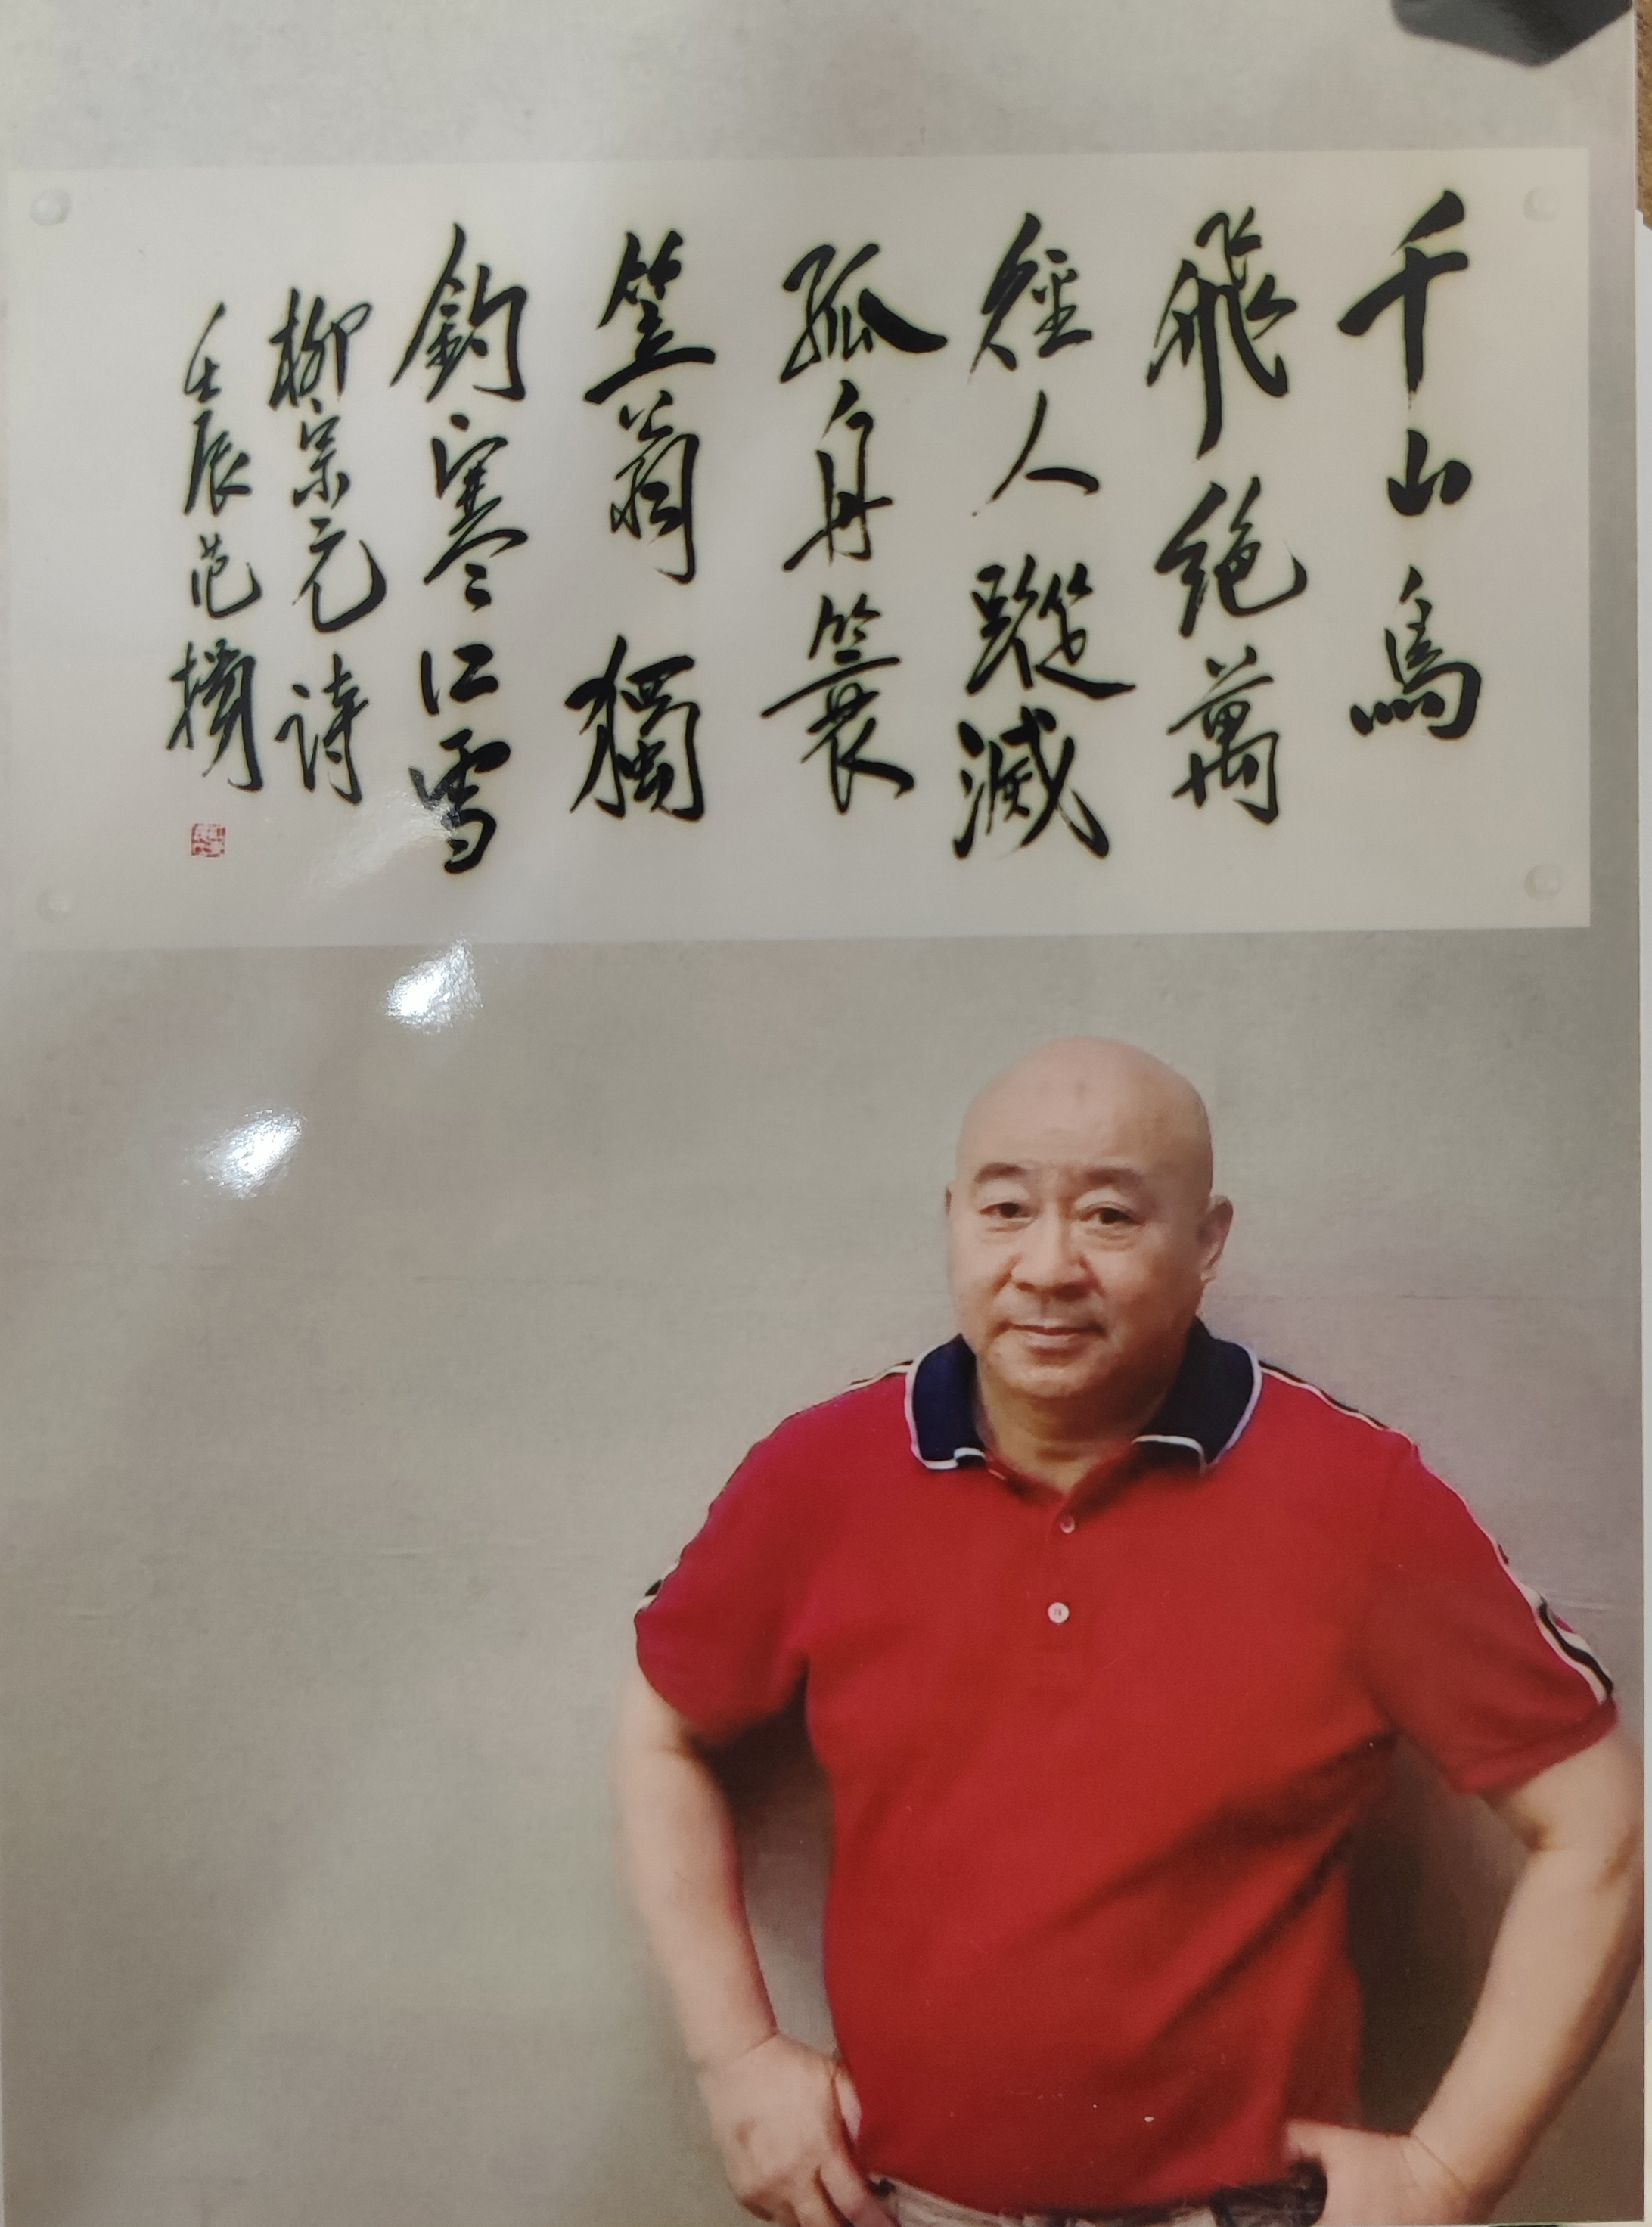 千山鳥
飛絶萬
徑人蹤滅
孤舟簑
笠翁獨
釣寒江雪
柳宗元詩
壬辰范